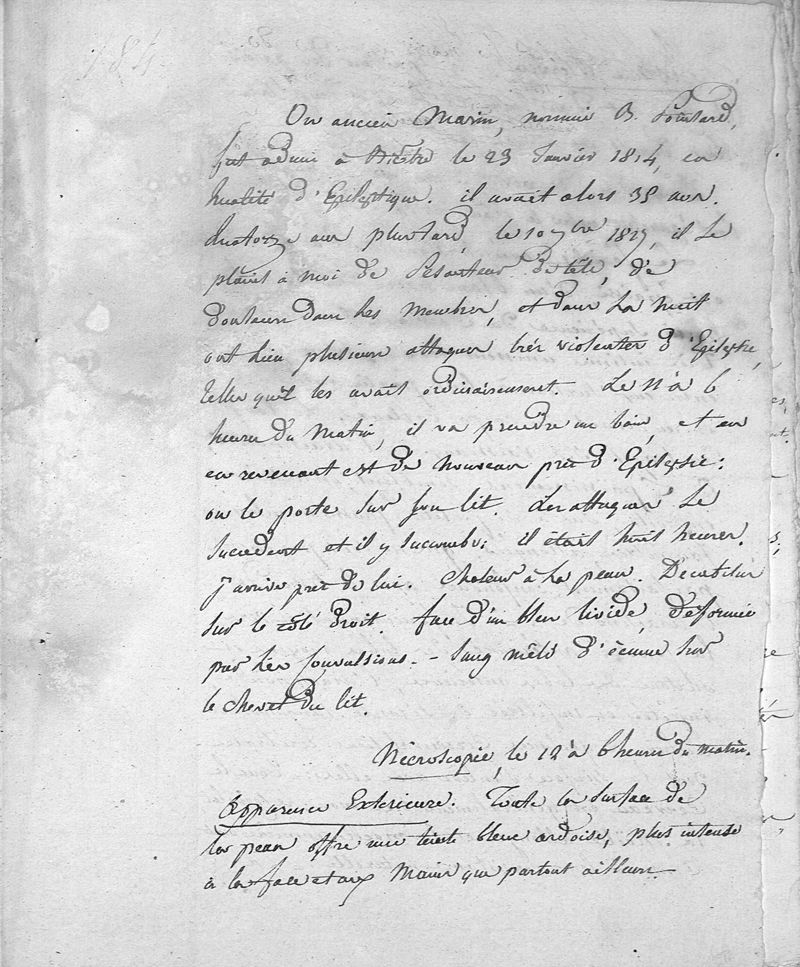 184
Un ancien Marin, nommé B.
fut admis à Bicêtre le 23 Janvier 1814, en
qualité d'Epileptique. il avait alors 35 ans.
Quatorze ans plus tard, le 10 9bre 1827, il se
plaint à moi de Pesanteur de tête, de
douleurs dans les Membres, et dans la Nuit
ont lieu plusieurs attaques très violentes d'Epilepsie,
telles qu'il les avait ordinairement. Le 11 à 6
heures du Matin, il va prendre un bain, et en
en revenant est de nouveau pris d'Epilepsie:
on le porte sur son lit. Les attaques se
succedent et il y succombe: il était huit heures.
j'arrive près de lui. Chaleur à la peau. Decubitus
sur le côté droit. face d'un bleu livide, déformée
par les Convulsions. - Sang mêlé d'écume sur
le chevet du lit.
Nécroscopie, le 12 à 6 heures du matin.
Apparence Extérieure. Toute la surface de
la peau offre une teinte bleue ardoise, plus intense
à la face et aux Mains que partout ailleurs.